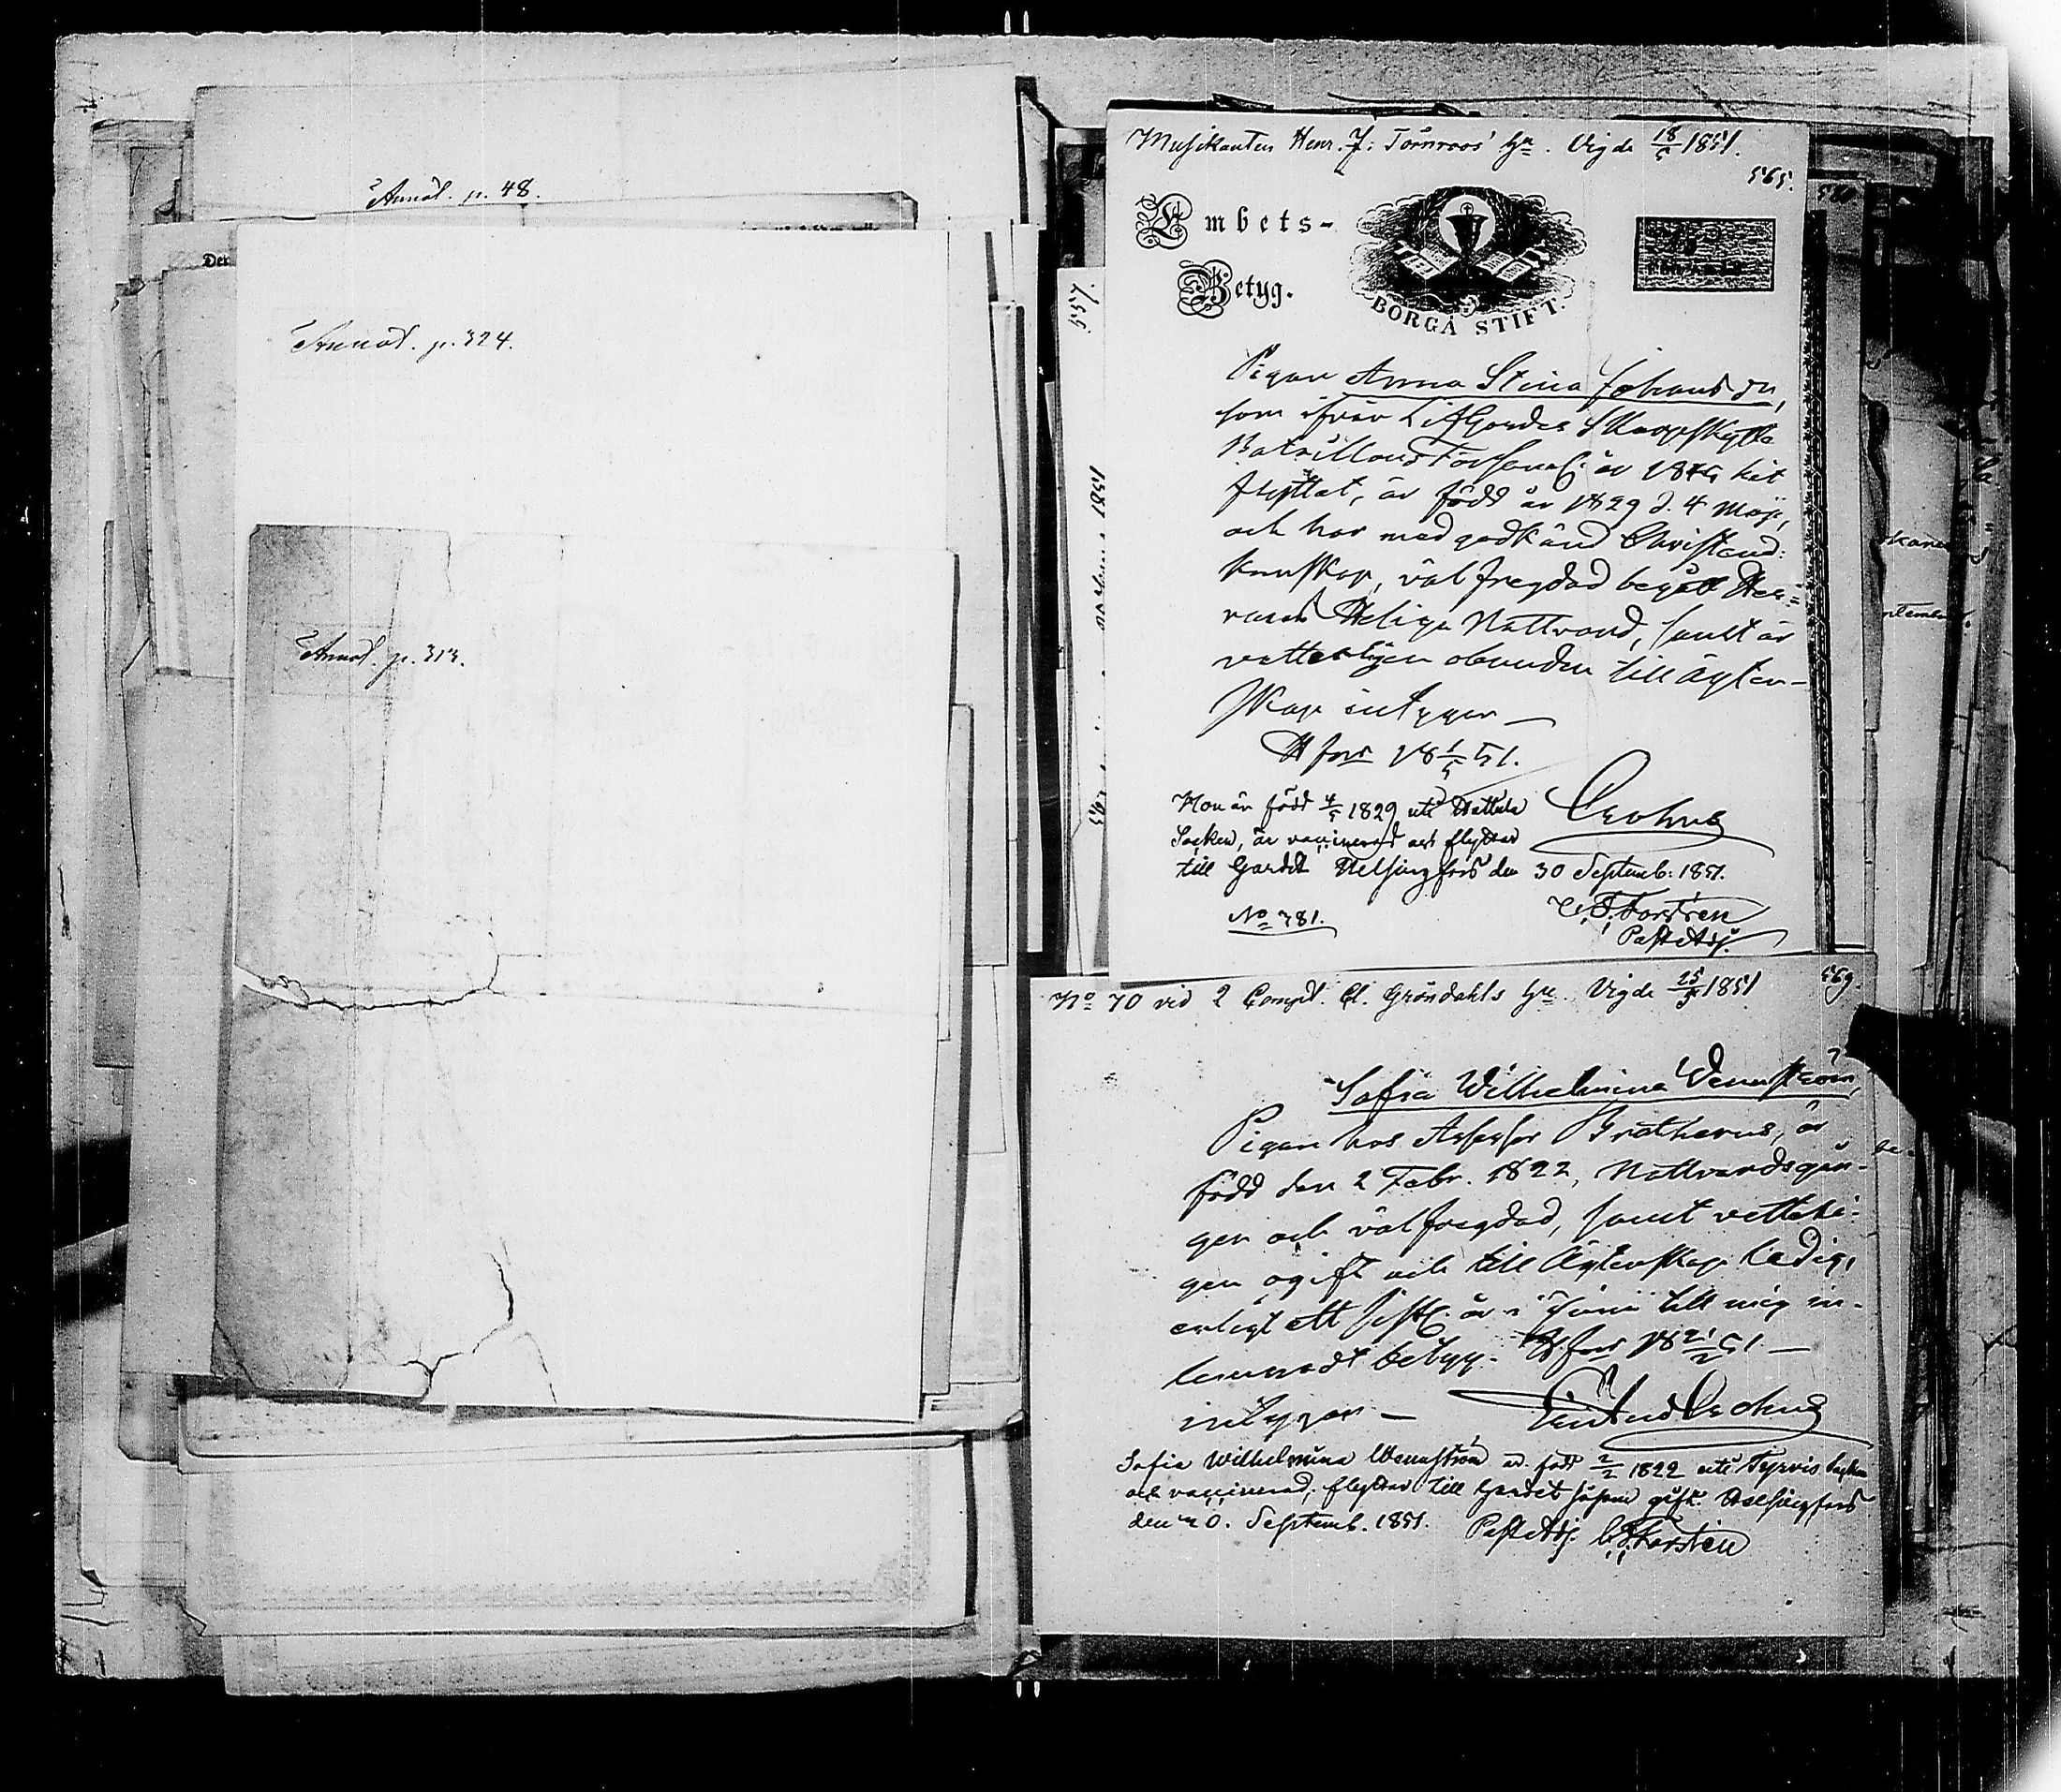 Annot. p. 48.
Annot. p. 324.
Annot. p. 313.
Musikanten Henr. J: Törnroos' Hu. Vigde 18/5 1851.
565.
Embets-
Betyg.
BORGÅ STIFT.
Pigan Anna Stina Johansdr,
som ifrån LifGardes SkarpSkytte
Bataillons Församl. år hit
flyttat, är född år 1829 d. 4 Maji,
och har med godkänd Christend:
kunskap, välfrejdad begått Her=
rans Heliga Nattvard, samt är
vetterligen obunden till Ägten-
skap intygar
Hfors 18 1/5 51.
Crohns
Hon är född 4/5 1829 uti Hattula
Socken, är vaccinerad och flyttar
till Gardet. Helsingfors den 30 Septemb: 1851.
No 781.
Past.Adj.
No 70 vid 2 Comp. C. Gröndahls Hu. Vigde 25/5 1851
569.
Sofia Wilhelmina Wennström,
Pigan hos Assessor Bratherus, är
född den 2 Febr. 1822, Nattvardsgån-
gen och välfrejdad, samt vetterli-
gen ogift och till Ägtenskap ledig,
enligt ett sistl. år i Junii till mig in-
lemnadt betyg. Hfors 18 21/2 51
intygar
Crohns
Sofia Wilhelmina Wennström är född 2/2 1822 uti Tyrvis Socken
och vaccinerad, flyttar till Gardet såsom gift. Helsingfors
den 30. Septemb. 1851. Past.Adj.